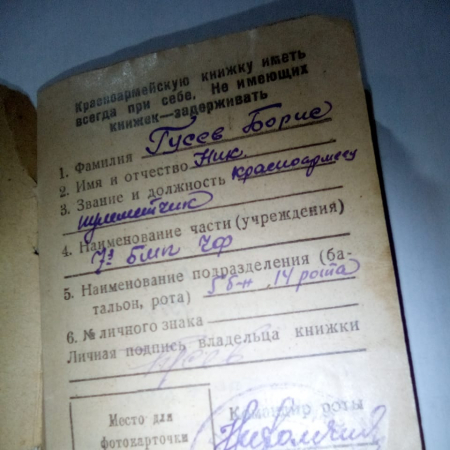 Красноармейскую книжку иметь
всегда при себе. Не имеющих
книжек—задерживать
1. Фамилия Гусев Борис
2. Имя и отчество Ник.
3. Звание и должность красноармеец
пулеметчик
4. Наименование части (учреждения)
7я БМП ЧФ
5. Наименование подразделения (ба-
тальон, рота) 5 б-н, 14 рота
6. № личного знака
Личная подпись владельца книжки
Гусев
Место для
фотокарточки
Командир роты